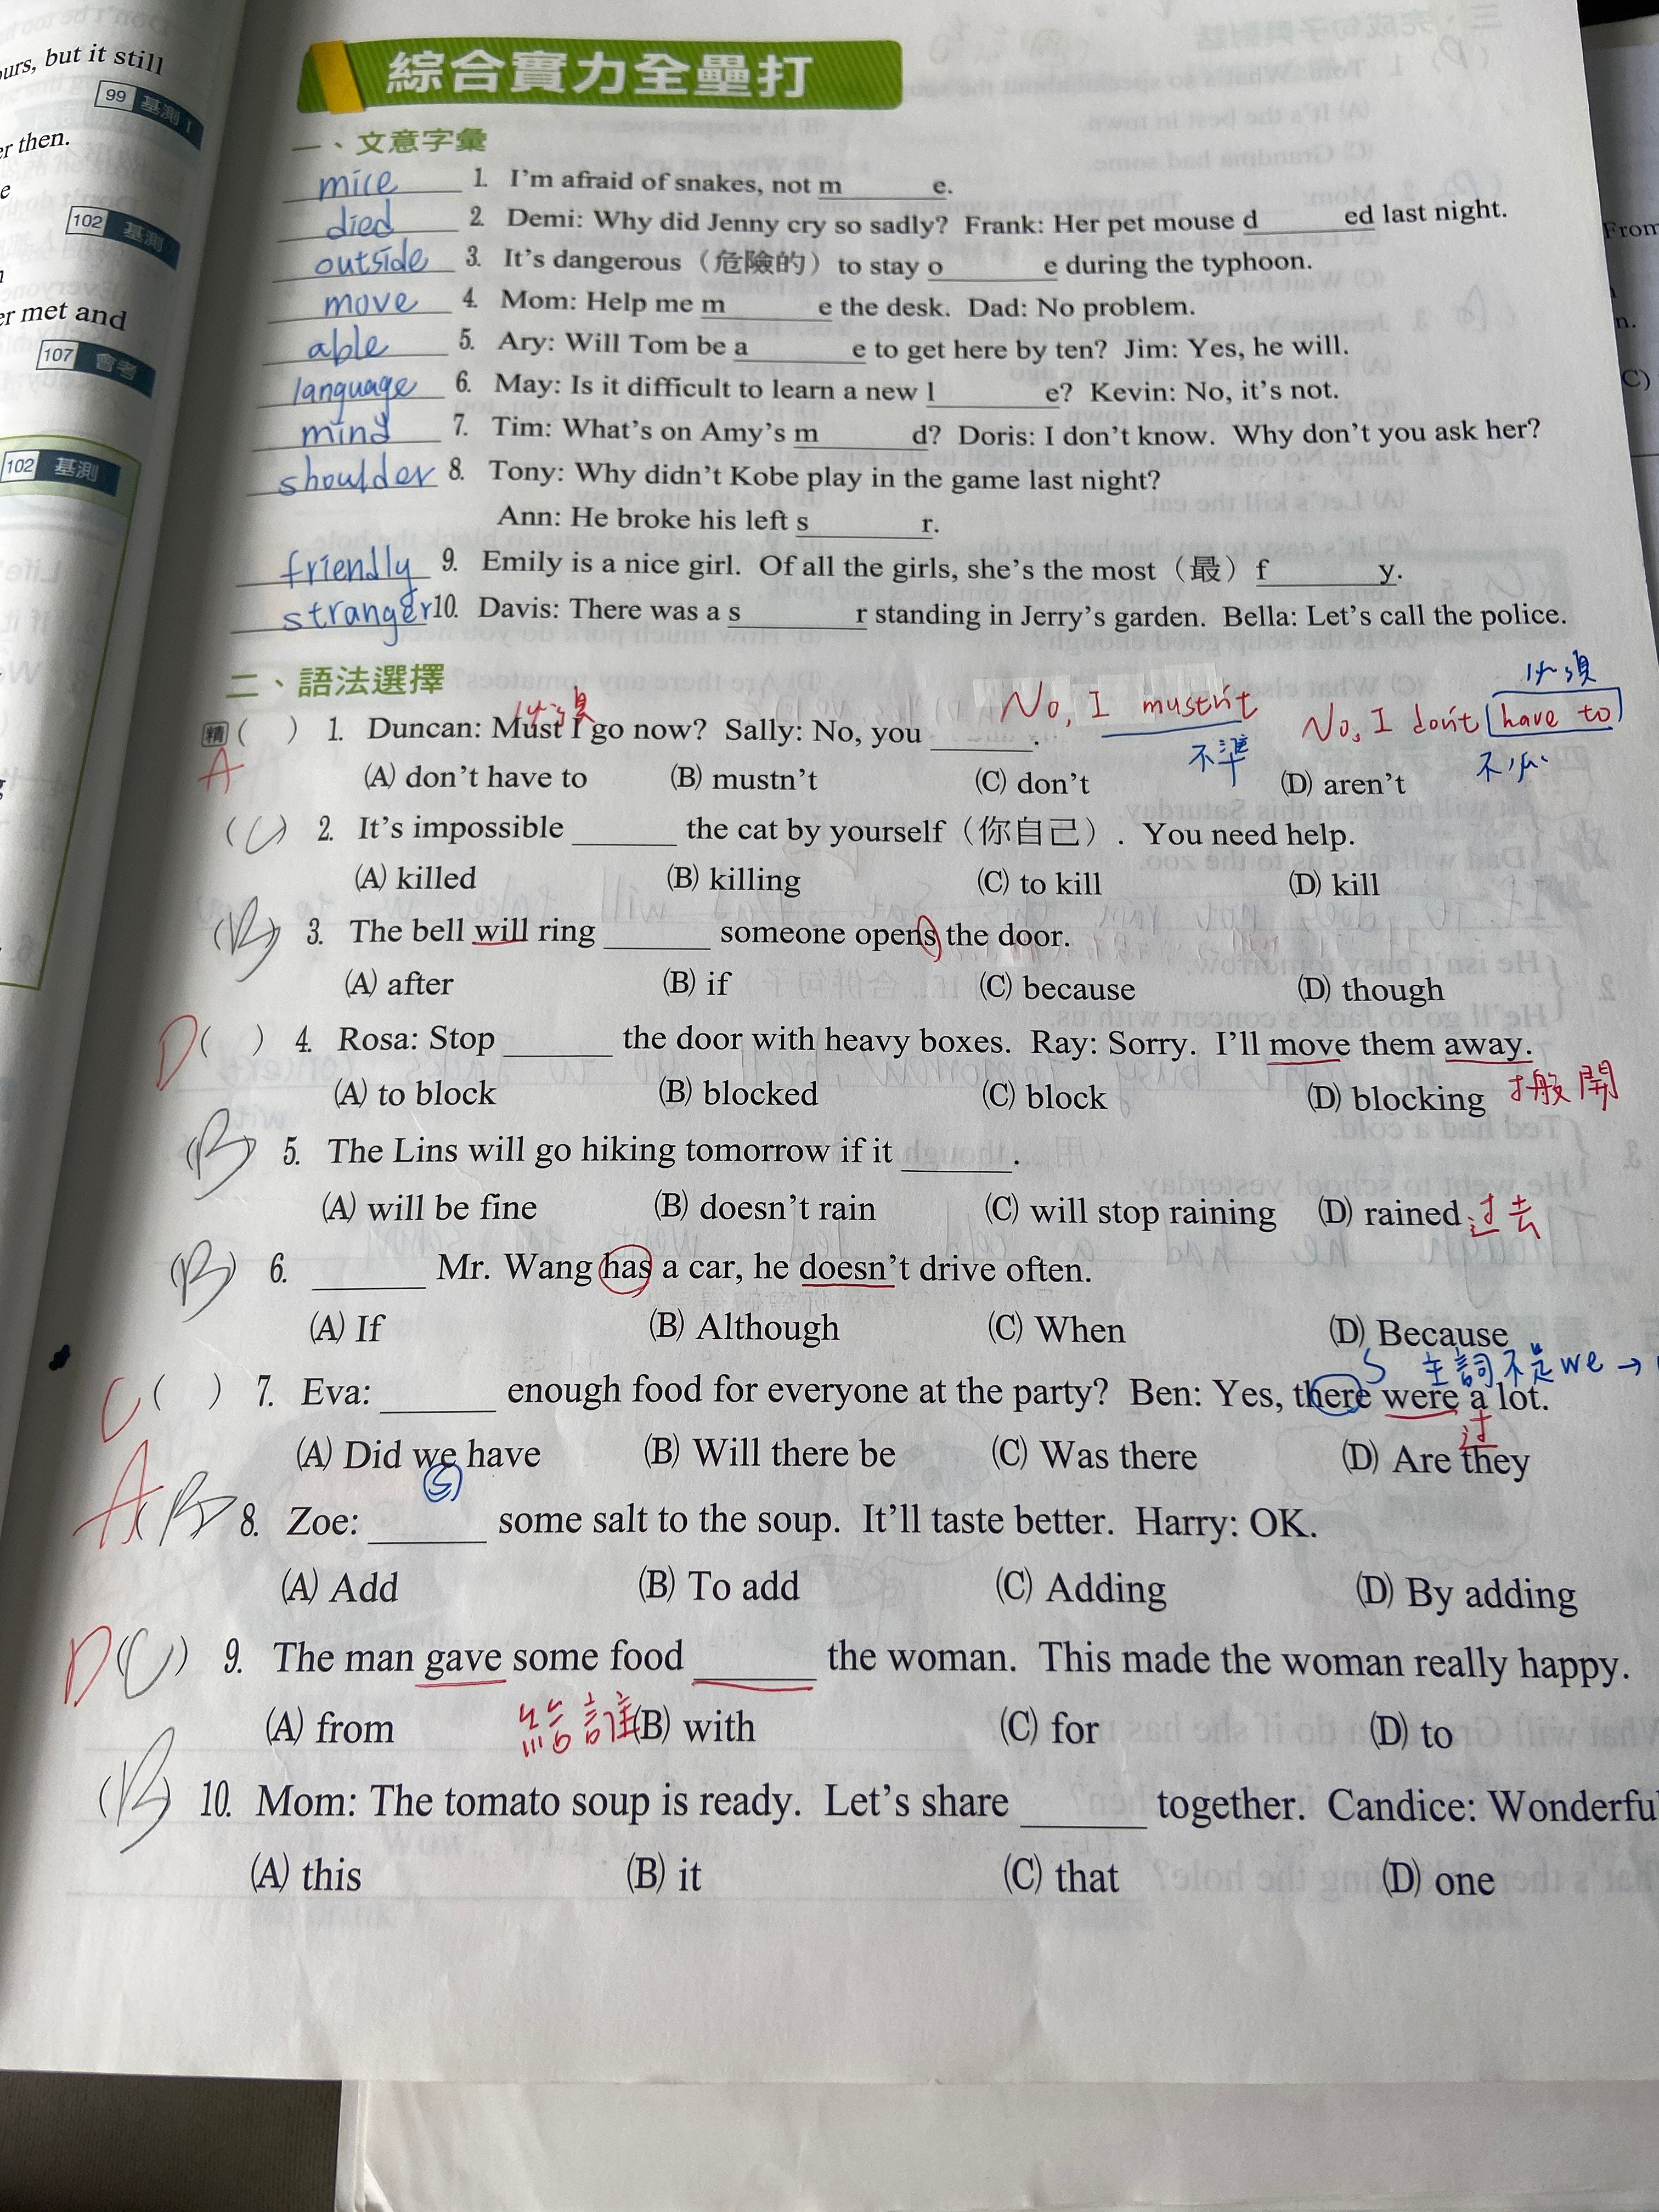 ours, but it still
99 基測 I
er then.
e
102 基測
er met and
107 會考
102 基測
綜合實力全壘打
一、文意字彙
mice 1. I'm afraid of snakes, not m______e.
died 2. Demi: Why did Jenny cry so sadly? Frank: Her pet mouse d______ed last night.
outside 3. It's dangerous（危險的）to stay o______e during the typhoon.
move 4. Mom: Help me m______e the desk. Dad: No problem.
able 5. Ary: Will Tom be a______e to get here by ten? Jim: Yes, he will.
language 6. May: Is it difficult to learn a new l______e? Kevin: No, it's not.
mind 7. Tim: What's on Amy's m______d? Doris: I don't know. Why don't you ask her?
shoulder 8. Tony: Why didn't Kobe play in the game last night?
Ann: He broke his left s______r.
friendly 9. Emily is a nice girl. Of all the girls, she's the most（最）f______y.
stranger 10. Davis: There was a s______r standing in Jerry's garden. Bella: Let's call the police.
二、語法選擇
必須
No, I mustn't
必須
No, I don't have to
不準
不必
精 ( ) 1. Duncan: Must I go now? Sally: No, you ______.
A
(A) don't have to (B) mustn't (C) don't (D) aren't
(C) 2. It's impossible ______ the cat by yourself（你自己）. You need help.
(A) killed (B) killing (C) to kill (D) kill
(B) 3. The bell will ring ______ someone opens the door.
(A) after (B) if (C) because (D) though
D ( ) 4. Rosa: Stop ______ the door with heavy boxes. Ray: Sorry. I'll move them away.
(A) to block (B) blocked (C) block (D) blocking 搬開
(B) 5. The Lins will go hiking tomorrow if it ______.
(A) will be fine (B) doesn't rain (C) will stop raining (D) rained 过去
(B) 6. ______ Mr. Wang has a car, he doesn't drive often.
(A) If (B) Although (C) When (D) Because
S 主詞不是we →
C ( ) 7. Eva: ______ enough food for everyone at the party? Ben: Yes, there were a lot.
过
(A) Did we have (B) Will there be (C) Was there (D) Are they
S
A (B) 8. Zoe: ______ some salt to the soup. It'll taste better. Harry: OK.
(A) Add (B) To add (C) Adding (D) By adding
D (C) 9. The man gave some food ______ the woman. This made the woman really happy.
給誰
(A) from (B) with (C) for (D) to
(B) 10. Mom: The tomato soup is ready. Let's share ______ together. Candice: Wonderful
(A) this (B) it (C) that (D) one
From
n.
C)